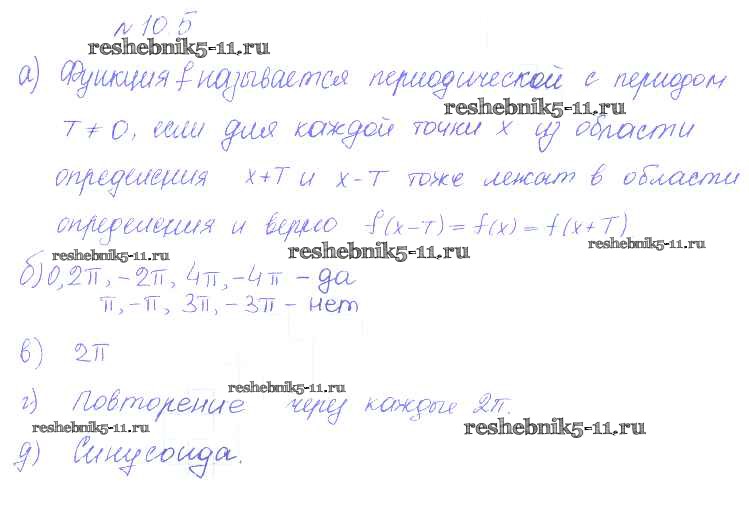 № 10.5
reshebnik5-11.ru
а) Функция f называется периодической с периодом
reshebnik5-11.ru
T ≠ 0, если для каждой точки x из области
определения x+T и x-T тоже лежат в области
определения и верно f(x-T) = f(x) = f(x+T)
reshebnik5-11.ru reshebnik5-11.ru reshebnik5-11.ru
б) 0, 2π, -2π, 4π, -4π - да
π, -π, 3π, -3π - нет
в) 2π
reshebnik5-11.ru
г) Повторение через каждые 2π.
reshebnik5-11.ru reshebnik5-11.ru
д) Синусоида.